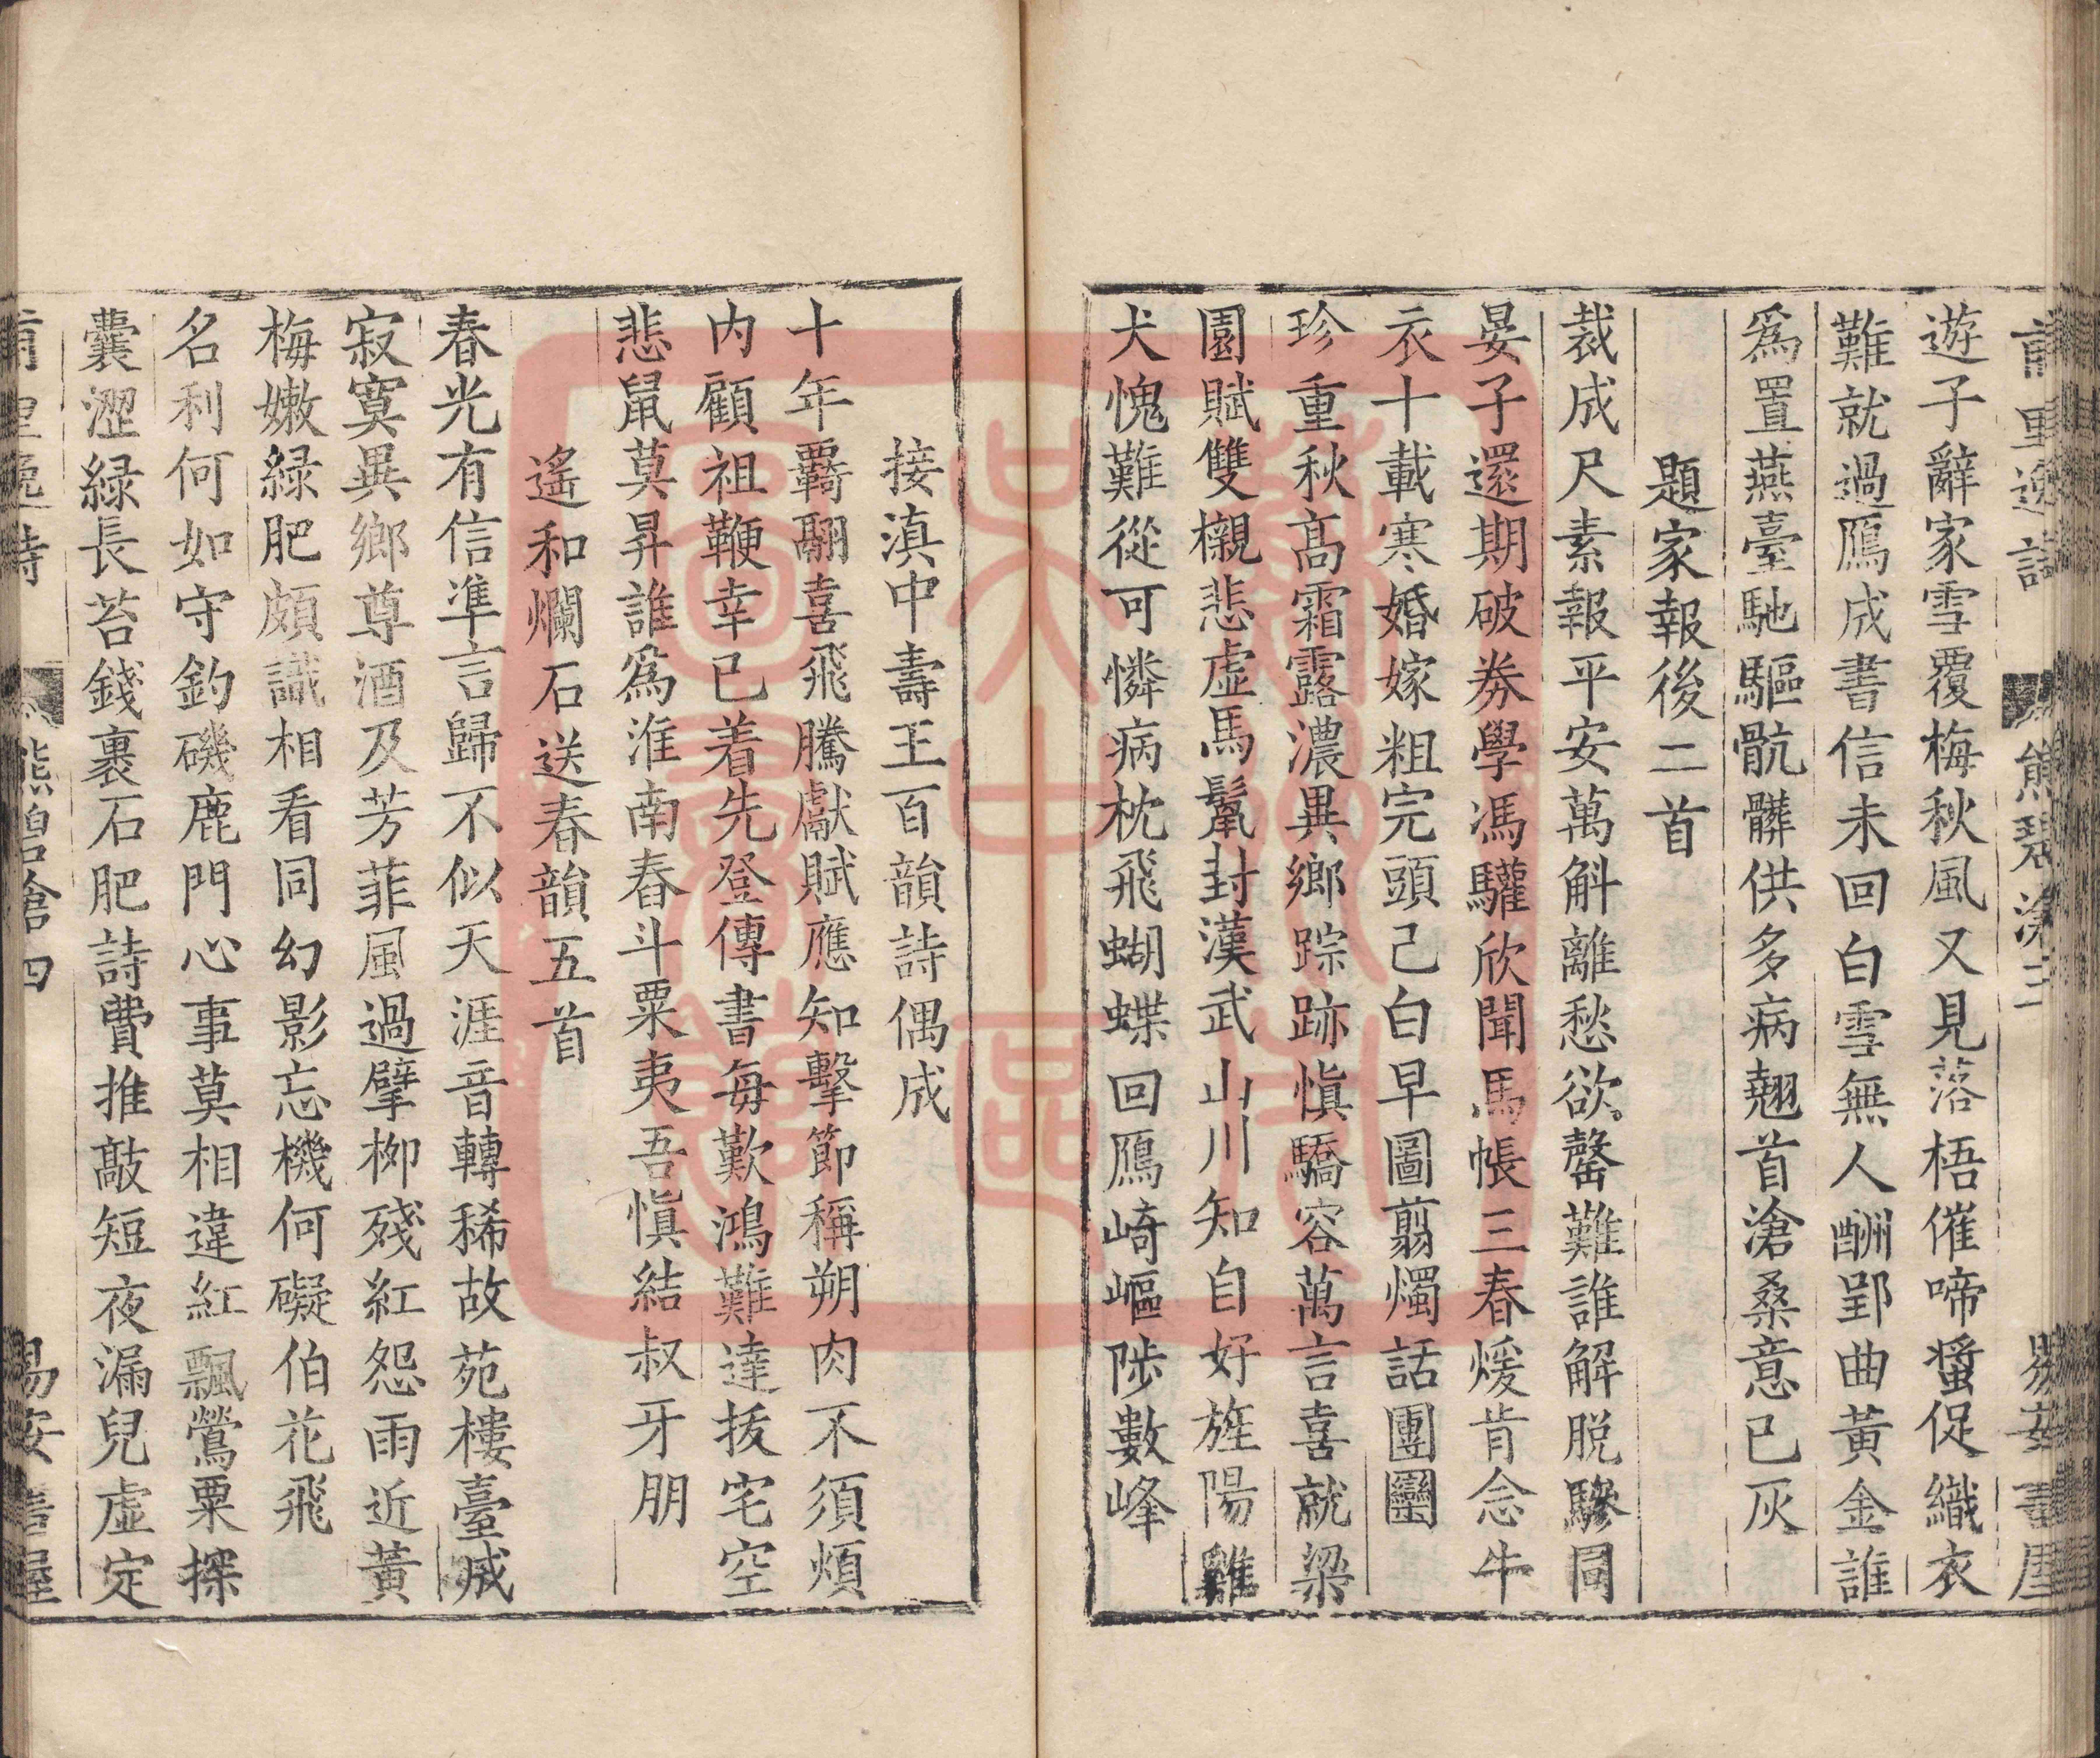 遊子辭家雪覆梅秋風又見落梧催啼螿促織衣
難就過鴈成書信未回白雪無人酬郢曲黃金誰
爲置燕臺馳驅骯髒供多病翹首滄桑意已灰
題家報後二首
裁成尺素報平安萬斛離愁欲罄難誰解脱驂同
晏子還期破券學馮驩欣聞馬帳三春煖肯念牛
衣十載寒婚嫁粗完頭已白早圖翦燭話團圞
珍重秋高霜露濃異鄉踪跡慎驕容萬言喜就梁
園賦雙櫬悲虛馬鬣封漢武山川知自好旌陽雞
犬愧難從可憐病枕飛蝴蝶回鴈崎嶇陟數峰
接滇中壽王百韻詩偶成
十年覊翮喜飛騰獻賦應知擊節稱朔肉不須煩
内顧祖鞭幸已着先登傳書每歎鴻難達拔宅空
悲鼠莫昇誰爲淮南舂斗粟夷吾慎結叔牙朋
遙和爛石送春韻五首
春光有信準言歸不似天涯音轉稀故苑樓臺戚
寂寞異鄉尊酒及芳菲風過擘柳殘紅怨雨近黃
梅嫩緑肥頗識相看同幻影忘機何礙伯花飛
名利何如守釣磯鹿門心事莫相違紅飄鶯粟探
囊澀緑長苔錢裹石肥詩費推敲短夜漏兒虛定